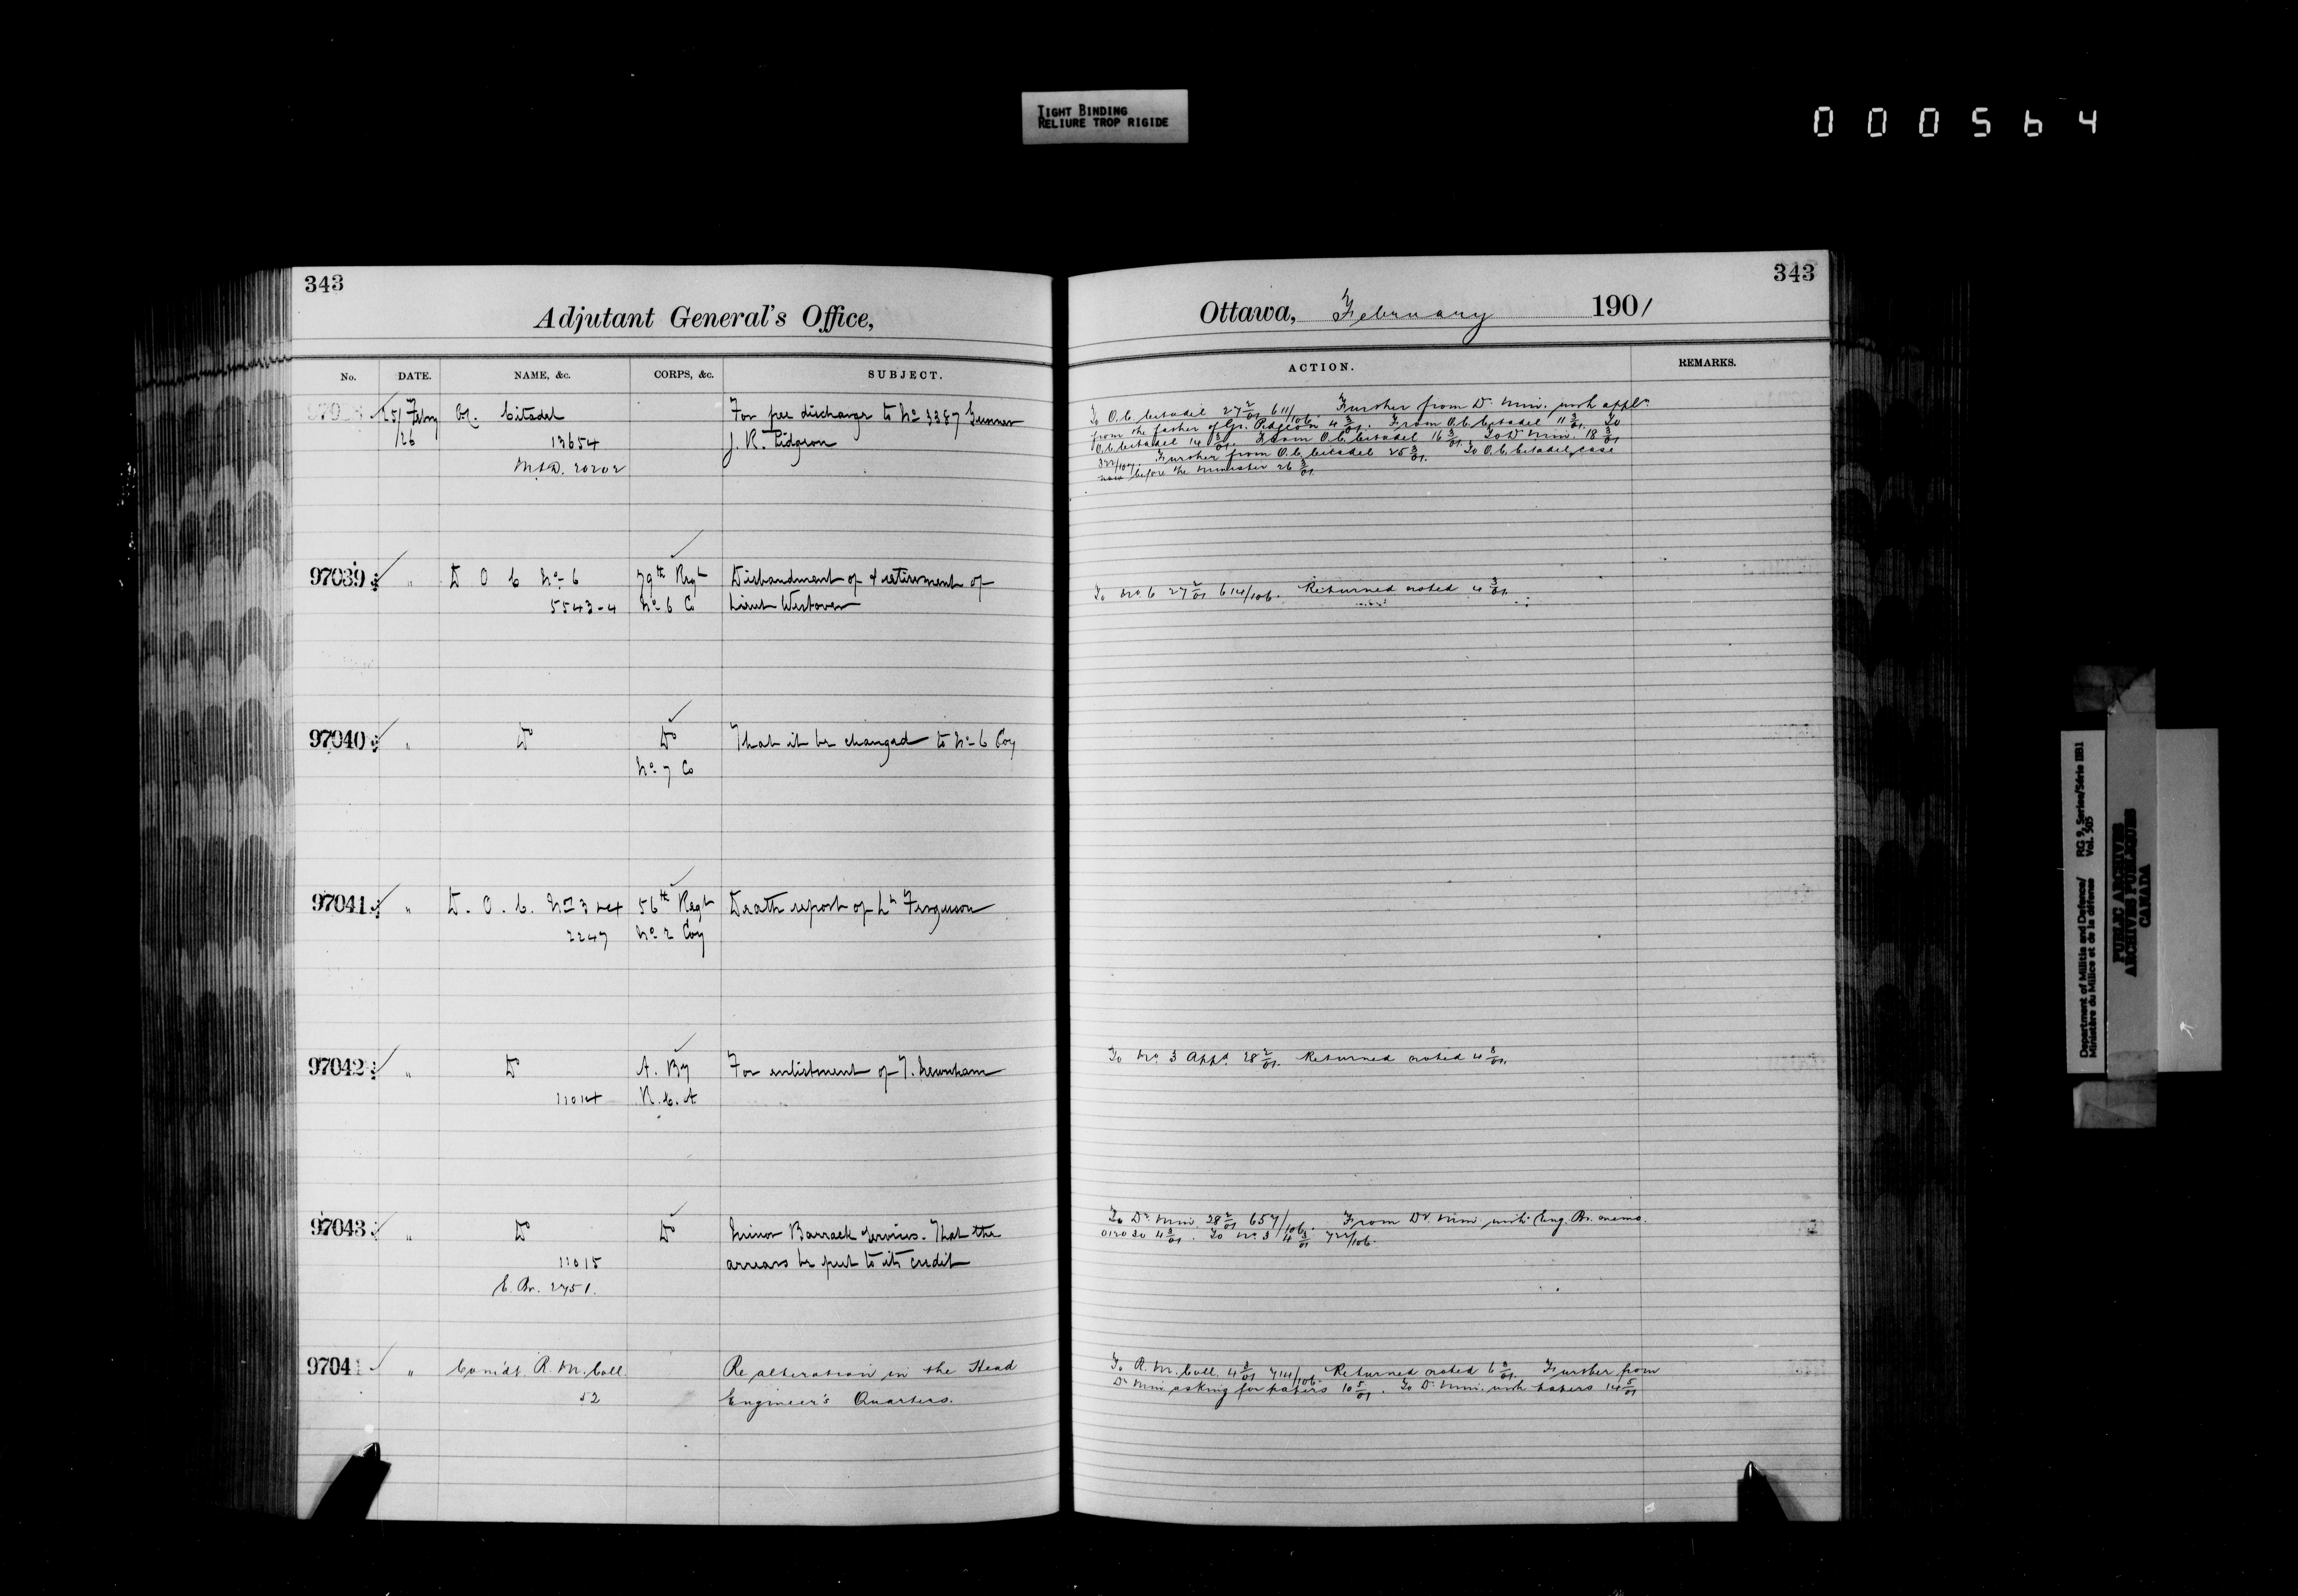 TIGHT BINDING
RELIURE TROP RIGIDE
000564
343
Adjutant General's Office,
No. DATE. NAME, &c. CORPS, &c. SUBJECT.
25/Febry Qr. Citadel For free discharge to No 3387 Gunner
/26 13654 J. R. Pidgeon
M & D. 20202
97039 " D O C No 6 79th Regt Disbandment of & retirement of
5543-4 No 6 Co Lieut Westover
97040 " Do Do That it be changed to No 6 Coy
No 7 Co
97041 " D. O. C. No 3 & 4 56th Regt Death report of Lt Ferguson
2247 No 2 Coy
97042 " Do A. By For enlistment of T. Newnham
11014 R. C. A
97043 " Do Do Minor Barrack Services. That the
11015 arrears be put to its credit
E. Br. 2751.
9704 " Comdt. R. M. Coll. Re alteration in the Head
52 Engineer's Quarters.
343
Ottawa, February 1901
ACTION. REMARKS.
To O.C. Citadel 27 2/01 611/106. Further from Dr. Min. with appln.
from the father of Gr. Pidgeon 4 3/01. From O.C. Citadel 11 3/01. To
O.C. Citadel 14 3/01. From O.C. Citadel 16 3/01. To D Min. 18 3/01
322/107. Further from O.C. Citadel 25 3/01. To O.C. Citadel, case
now before the Minister 26 3/01
To No. 6 27 2/01 614/106. Returned noted 4 3/01.
To No. 3 Appd. 28 2/01. Returned noted 4 3/01.
To Dr. Min. 28 2/01 657/106. From Dr. Min. with Eng. Br. memo.
4 3/01. To No. 3 4 3/01 722/106.
To R. M. Coll. 4 3/01 714/106. Returned noted 6 3/01. Further from
Dr. Min asking for papers 10 5/01. To Dr. Min. with papers 14 5/01
Department of Militia and Defence/ RG 9, Series/Série IIB1
Ministère du Milice et de la défense Vol. 505
PUBLIC ARCHIVES
ARCHIVES PUBLIQUES
CANADA